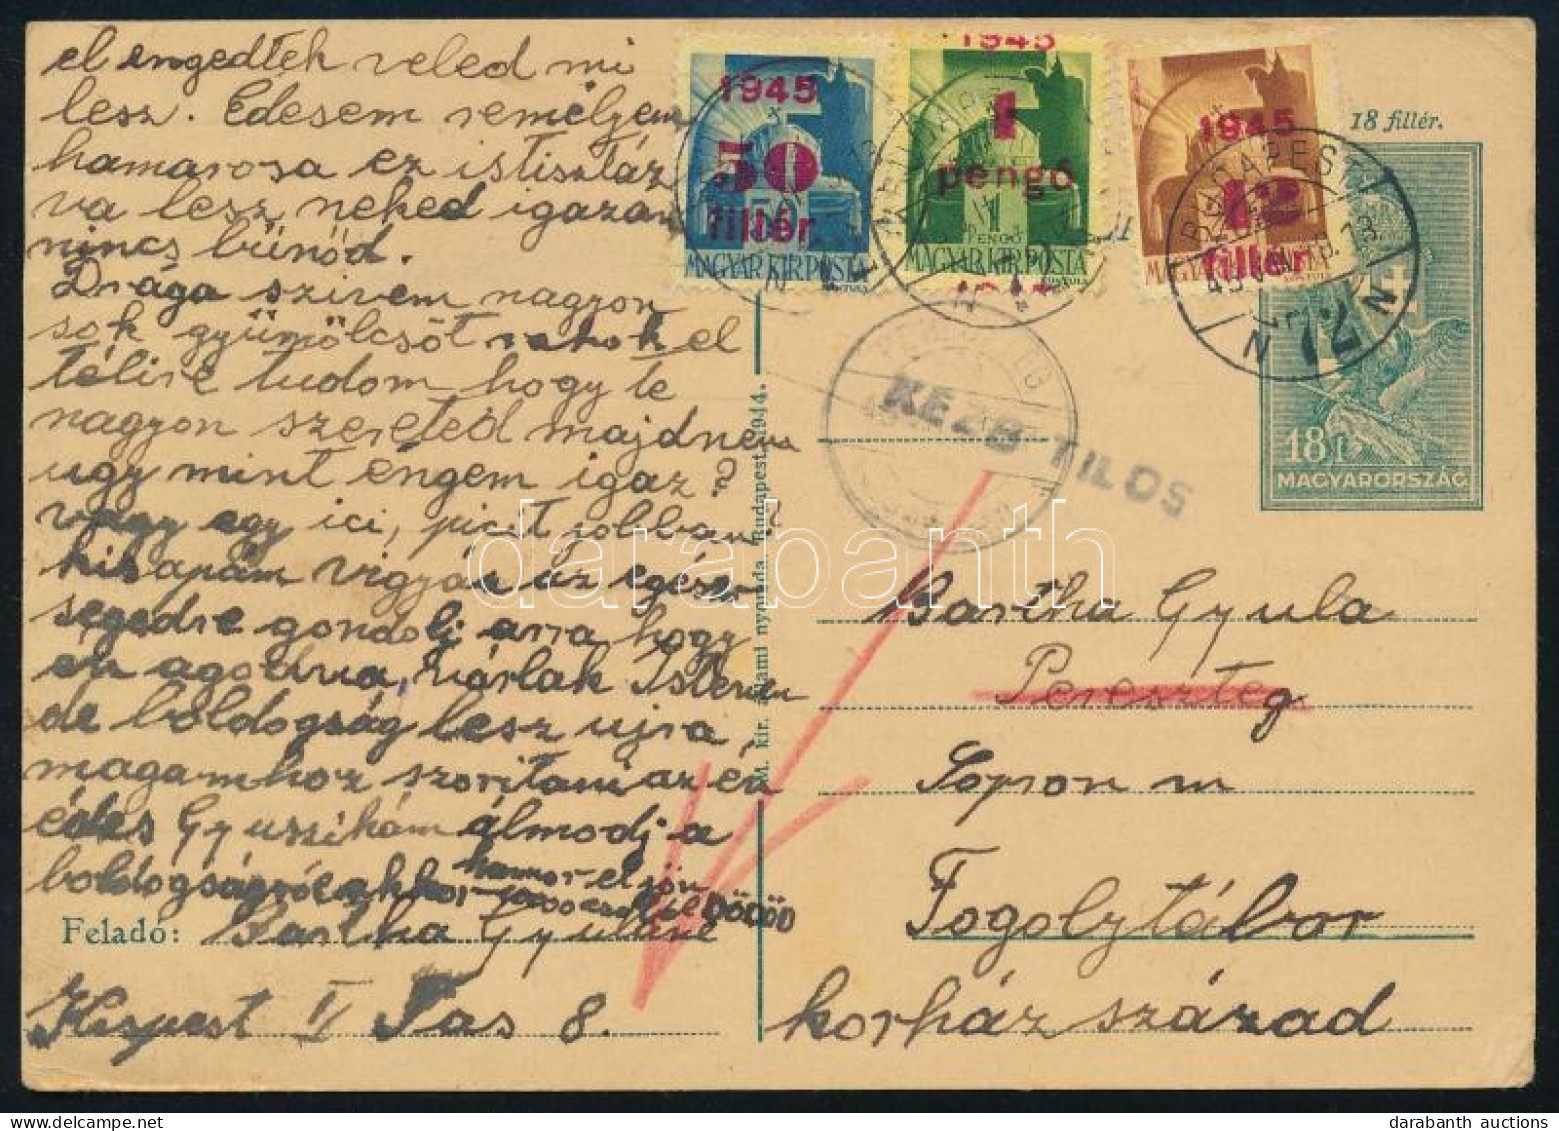 el engedtek veled mi
lesz. Edesem remeljem
hamarosa ez is tisztáz
va lesz neked igazán
nincs bűnöd.
Drága szivem nagyon
sok gyümölcsöt rakok el
télire tudom hogy te
nagyon szereted majdnem
ugy mint engem igaz?
vagy egy ici, picit jobban?
kisapám vigyáz az egész
segedre gondolj arra hogy
én agodva, várlak Istenem
de boldogság lesz ujra
magamhoz szoritani az én
édes Gyuszikám álmodj a
boldogságról akkor hamar eljön
Feladó: Bartha Gyuláné
Kispest V Sas 8.
1945
50
fillér
MAGYAR KIR. POSTA
1945
1
pengő
1
PENGŐ
MAGYAR KIR. POSTA
1945
12
fillér
BUDAPEST
72
N N
18 fillér.
18 f
MAGYARORSZÁG
KÉZB TILOS
M. kir. állami nyomda, Budapest. 1944.
darabanth
Bartha Gyula
Pereszteg
Sopron m
Fogolytábor
korház század
darabanth auctions